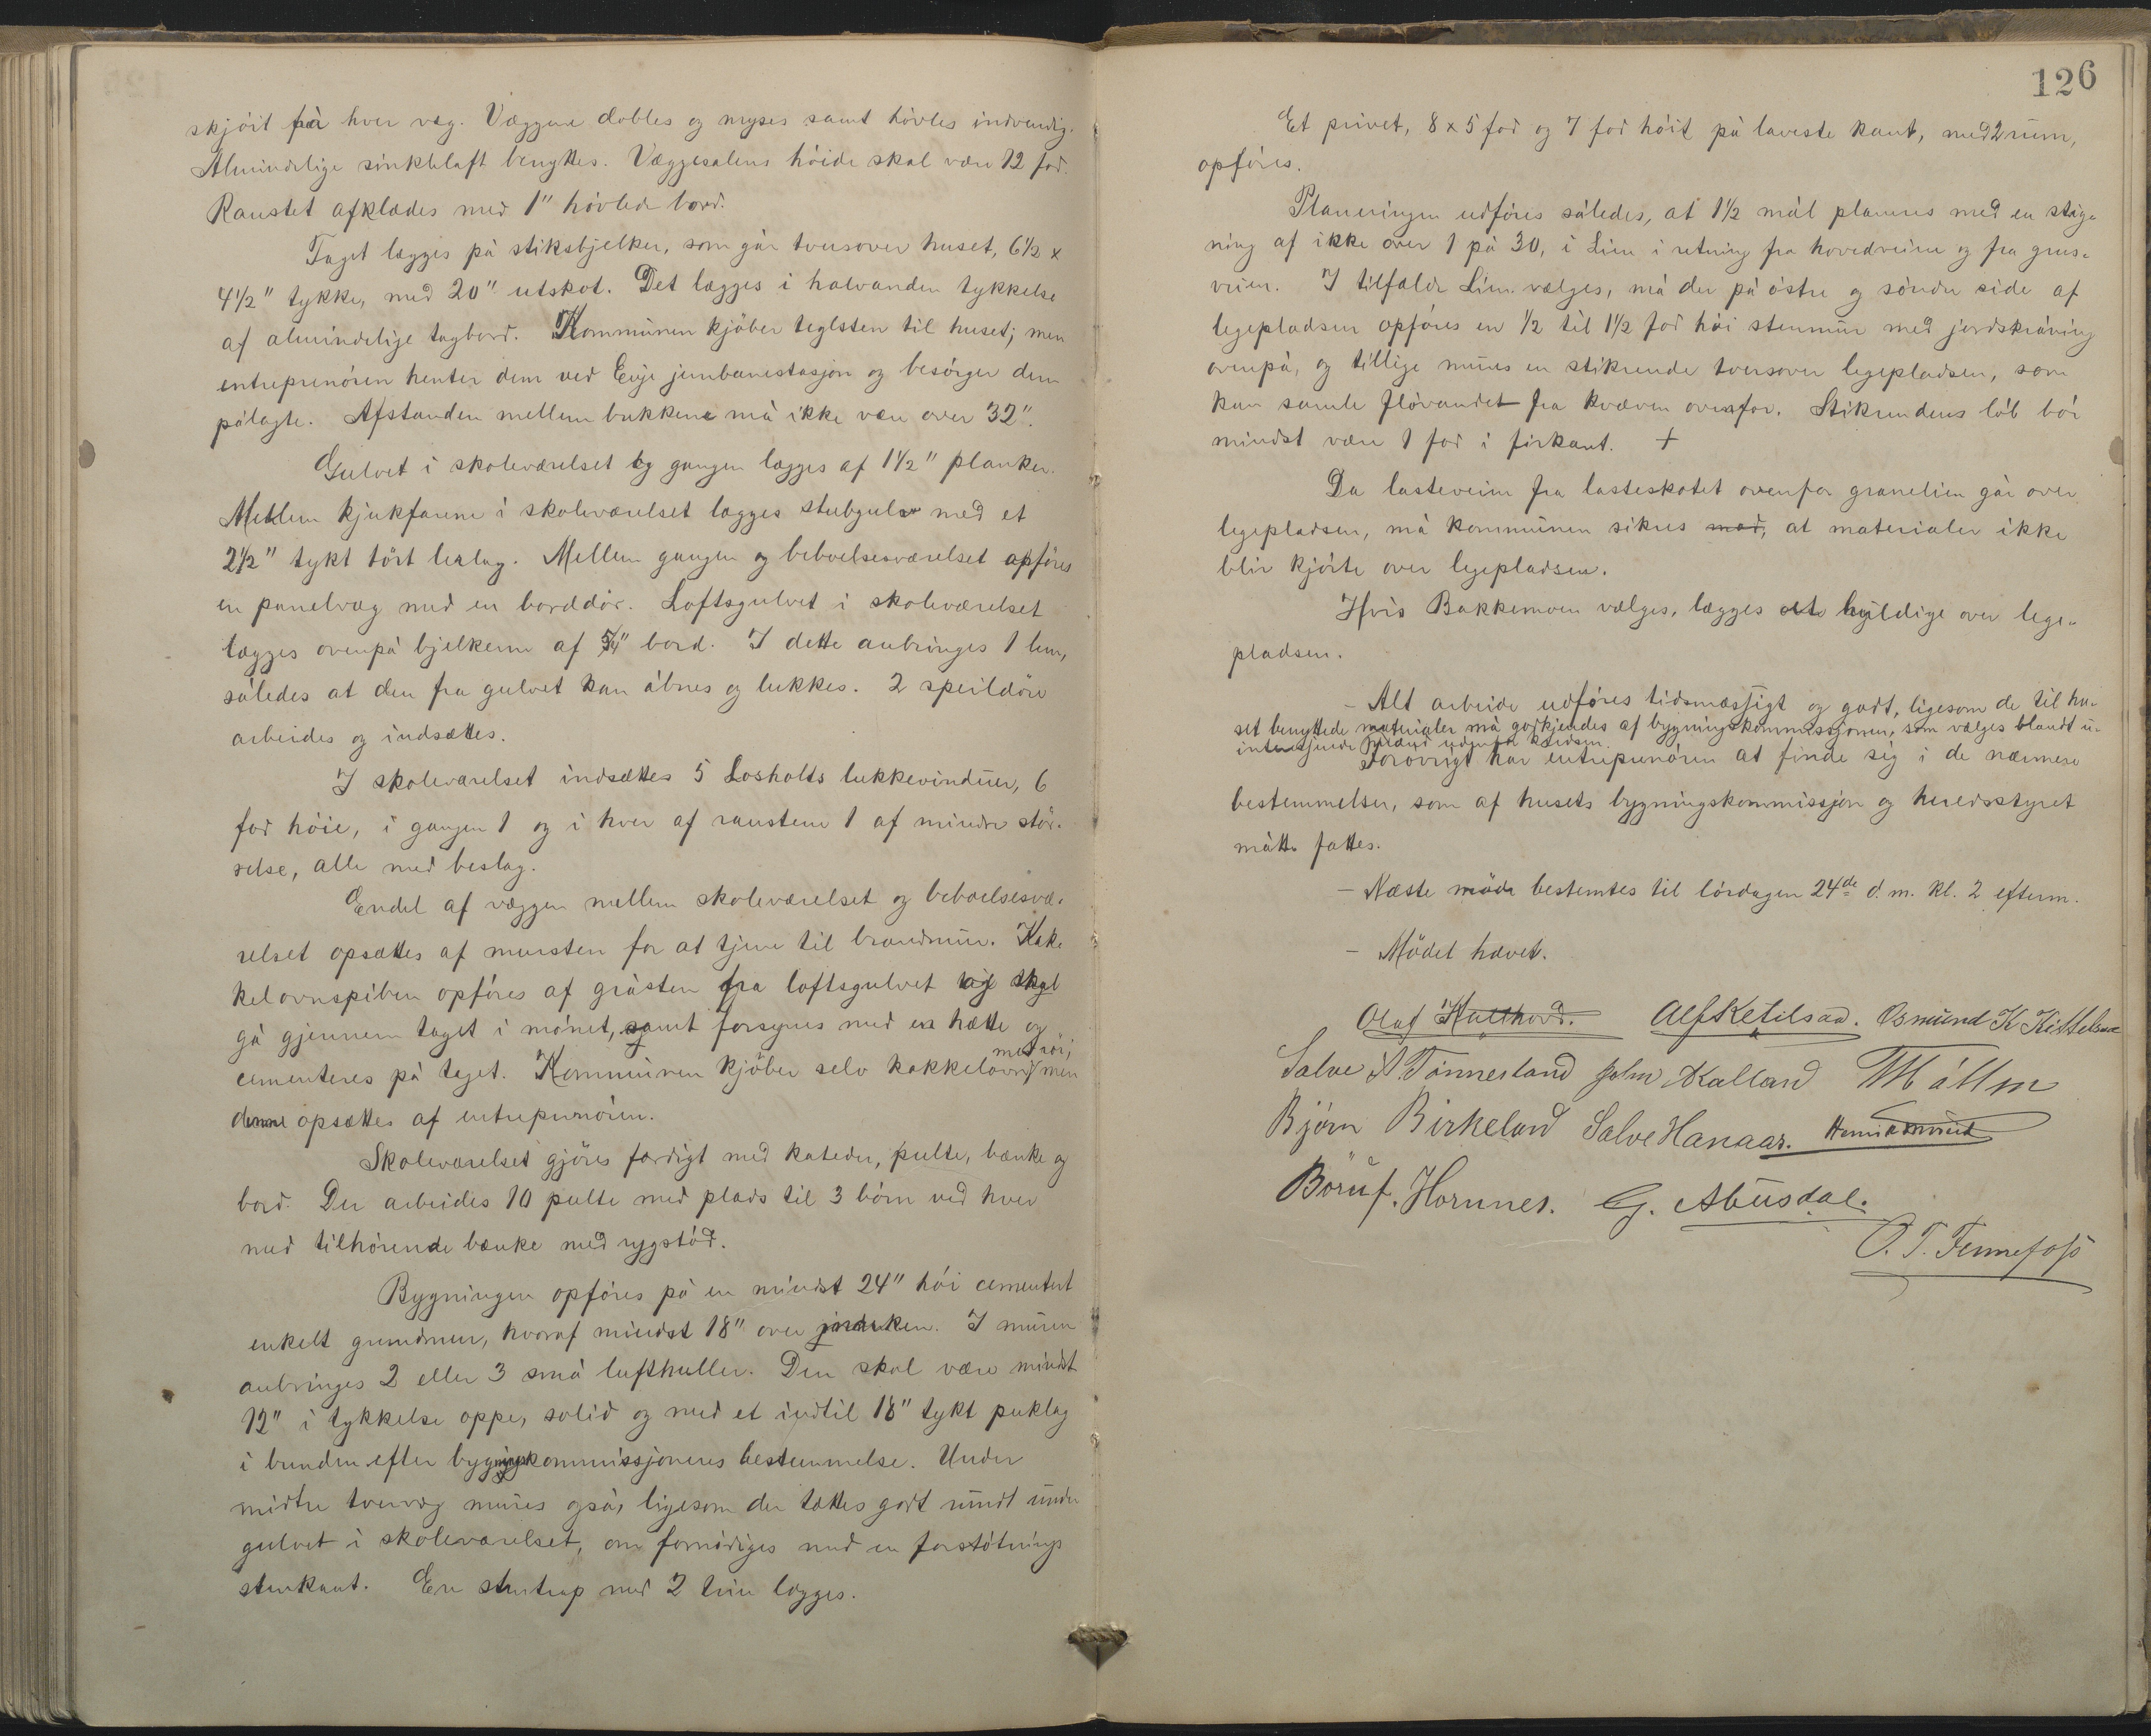 skjöit på hver væg. Væggene dobles og myses samt hövles indvendig.
Almindelige sinkblaft benyttes. Væggesalens höide skal være 12 fod.
Raustet afklædes med 1" hövlede bord.
Taget lægges på stiksbjelker, som går tversover huset, 6½ x
4½" tykke, med 20" utskot. Det lægges i halvanden tykkelse
af almindelige tagbord. Kommunen kjöber teglsten til huset; men
entreprenören henter dem ved Evje jernbanestasjon og besörger dem
pålagte. Afstanden mellem bukkene må ikke være over 32".
Gulvet i skoleværelset og gangen lægges af 1½" planker.
Mellem kjukfanne i skoleværelset lægges stubgulv med et
2½" tykt tört lerlag. Mellem gangen og beboelsesværelset opföres
en panelvæg med en borddör. Loftsgulvet i skoleværelset
lægges ovenpå bjelkerne af 5/4" bord. I dette anbringes 1 lem,
således at den fra gulvet kan åbnes og lukkes. 2 speildöre
arbeides og indsættes.
I skoleværelset indsættes 5 Losholts lukkevinduer, 6
fod höie, i gangen 1 og i hver af raustene 1 af mindre stör-
relse, alle med beslag.
Endel af væggen mellem skoleværelset og beboelsesvæ-
relset opsættes af mursten for at tjene til brandmur. Kak-
kelovnspiben opföres af gråsten fra loftsgulvet og skal
gå gjennem taget i mönet, samt forsynes med en hætte og
cementeres på taget. Kommunen kjöber selv kakkelovn med rör, men
denne opsættes af entreprenören.
Skoleværelset gjöres færdigt med kateder, pulte, bænke og
bord. Der arbeides 10 pulte med plads til 3 börn ved hver
med tilhörende bænke med rygstöd.
Bygningen opföres på en mindst 24" höi cementert
enkelt grundmur, hvoraf mindst 18" over jordsken. I muren
anbringes 2 eller 3 små lufthuller. Den skal være mindst
12" i tykkelse oppe, solid og med et indtil 18" tykt puklag
i bunden efter bygningskommissjonens bestemmelse. Under
midtre tvervæg mures også, ligesom der tættes godt rundt under
gulvet i skoleværelset, om fornödiges med en forstötnings
stenkant. En stentrap med 2 trin lægges.
126
Et privet, 8 x 5 fod og 7 fod höit på laveste kant, med 2 rum,
opföres.
Planeringen udföres således, at 1½ mål planeres med en stig-
ning af ikke over 1 på 30, i Lien i retning fra hovedveien og fra grus-
veien. I tilfælde Lien vælges, må der på östre og söndre side af
legepladsen opföres en ½ til 1½ fod höi stenmur med jordskråning
ovenpå, og tillige mures en stikrende tversover legepladsen, som
kan samle flövandet fra kværven ovenfor. Stikrendens löb bör
mindst være 1 fod i firkant. +
Da lasteveien fra lasteskotet ovenfor granelien går over
legepladsen, må kommunen sikres mod, at materialer ikke
blir kjörte over legepladsen.
Hvis Bakkemoen vælges, lægges over lege-
pladsen.
- Alt arbeide udföres tidsmæssigt og godt, ligesom de til hu-
set benyttede materialer må godkjendes af bygningskommissjonen, som vælges blandt u-
interesserede mænd udenfor kredsen.
Forövrigt har entreprenören at finde sig i de nærmere
bestemmelser, som af husets bygningskommissjon og heredsstyret
måtte fattes.
- Næste möde bestemtes til lördagen 24de d. m. kl. 2 efterm.
- Mödet hævet.
Olaf Kulthord. Alf Ketilsaa. Osmund K Kittelsaa
Salve A. Tönnesland John Kalland TMöllm
Björn Birkeland Salve Hanaas.
Böruf. Hornnes. G. Abusdal.
O. T. Fennefoss